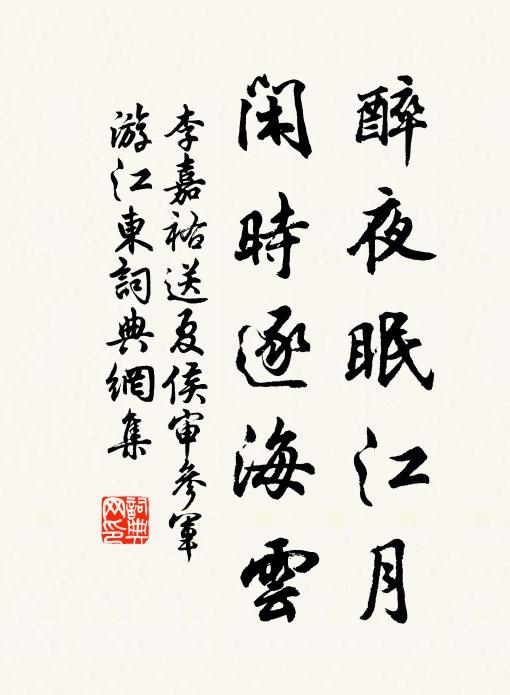 醉夜眠江月
闲時逐海雲
李嘉祐送夏侯审参军
游江東詞典網集
詞典
网印